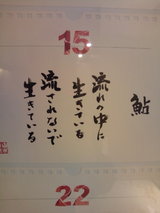 15
鮎
流れの中に
生きている
流されないで
生きている
22